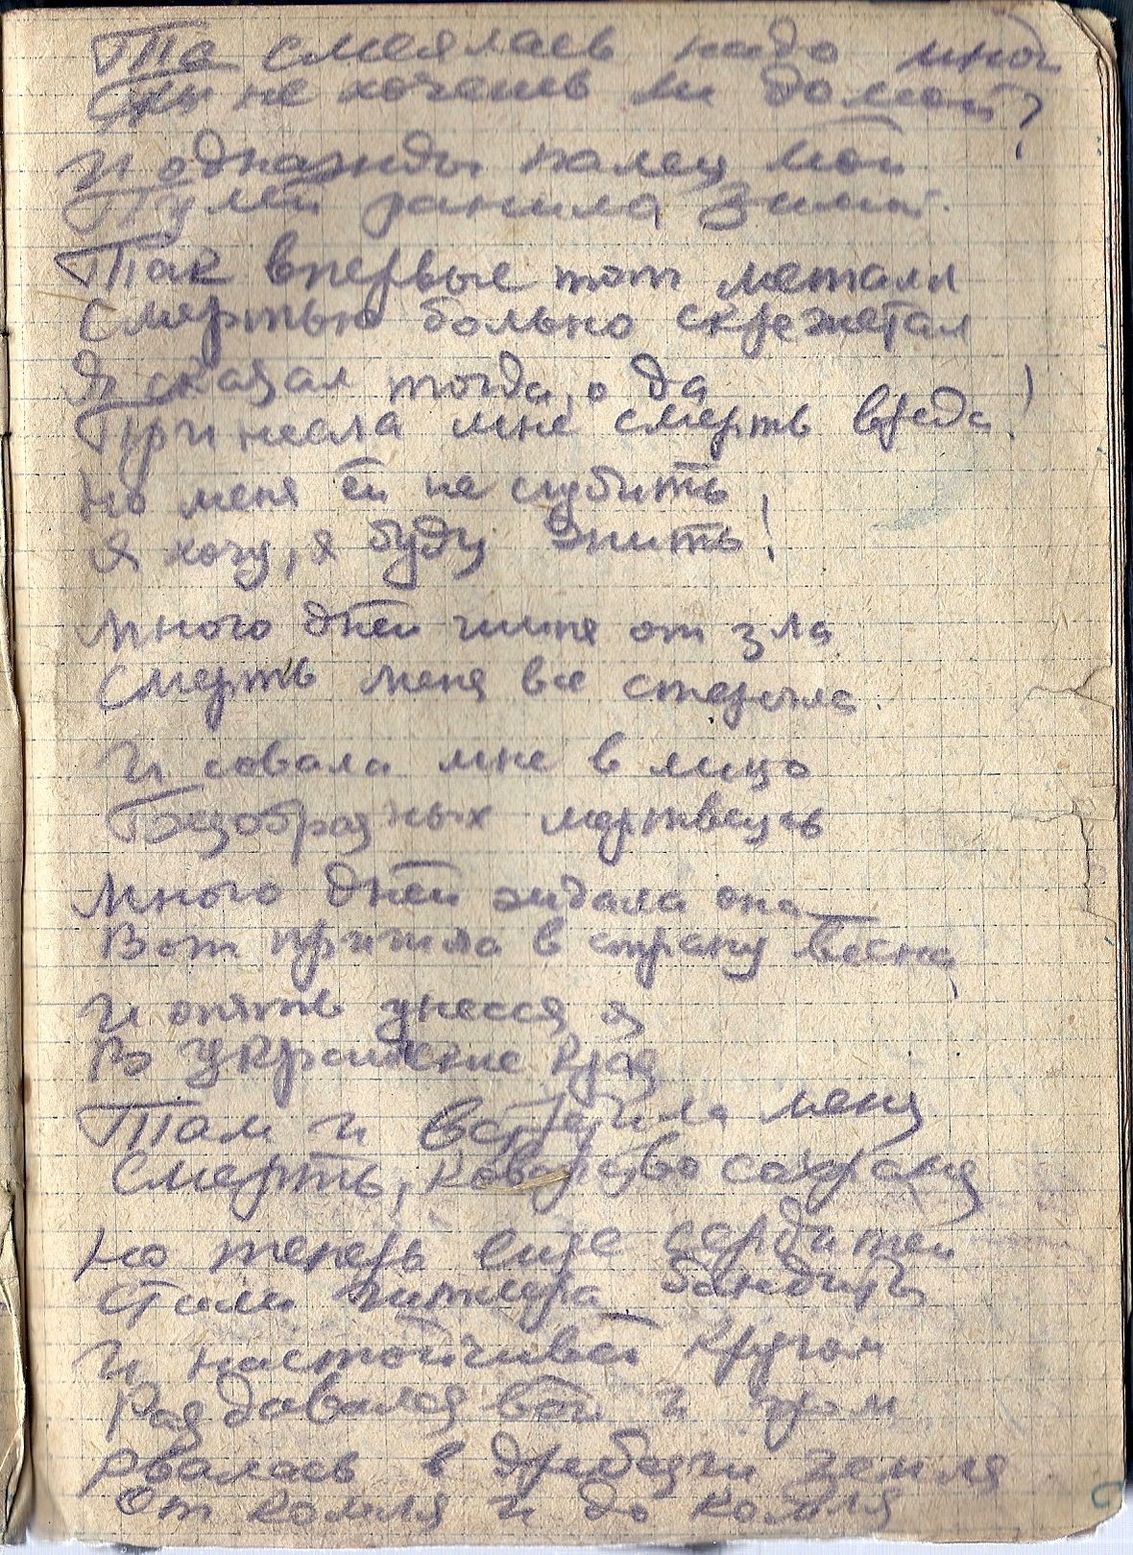 Та смеялась надо мной
Ты не хочешь ли домой?
И однажды палец мой
Пулей ранила зимой.
Так впервые тот металл
Смертью больно скрежетал
Я сказал тогда, о да
Принесла мне смерть вреда!
Но меня ей не сгубить
Я хочу, я буду жить!
Много дней от зла
Смерть меня все стерегла.
И совала мне в лицо
Безобразных мертвецов
Много дней ждала она
Вот пришла в страну весна,
И опять унесся я
В украинские края
Там и встретила меня
Смерть, коварство сохраня
Но теперь еще сердитей
Стали Гитлера бандиты
И настойчивей кругом
Раздавался вой и гром
Рвалась в дребезги земля
От комля и до комля